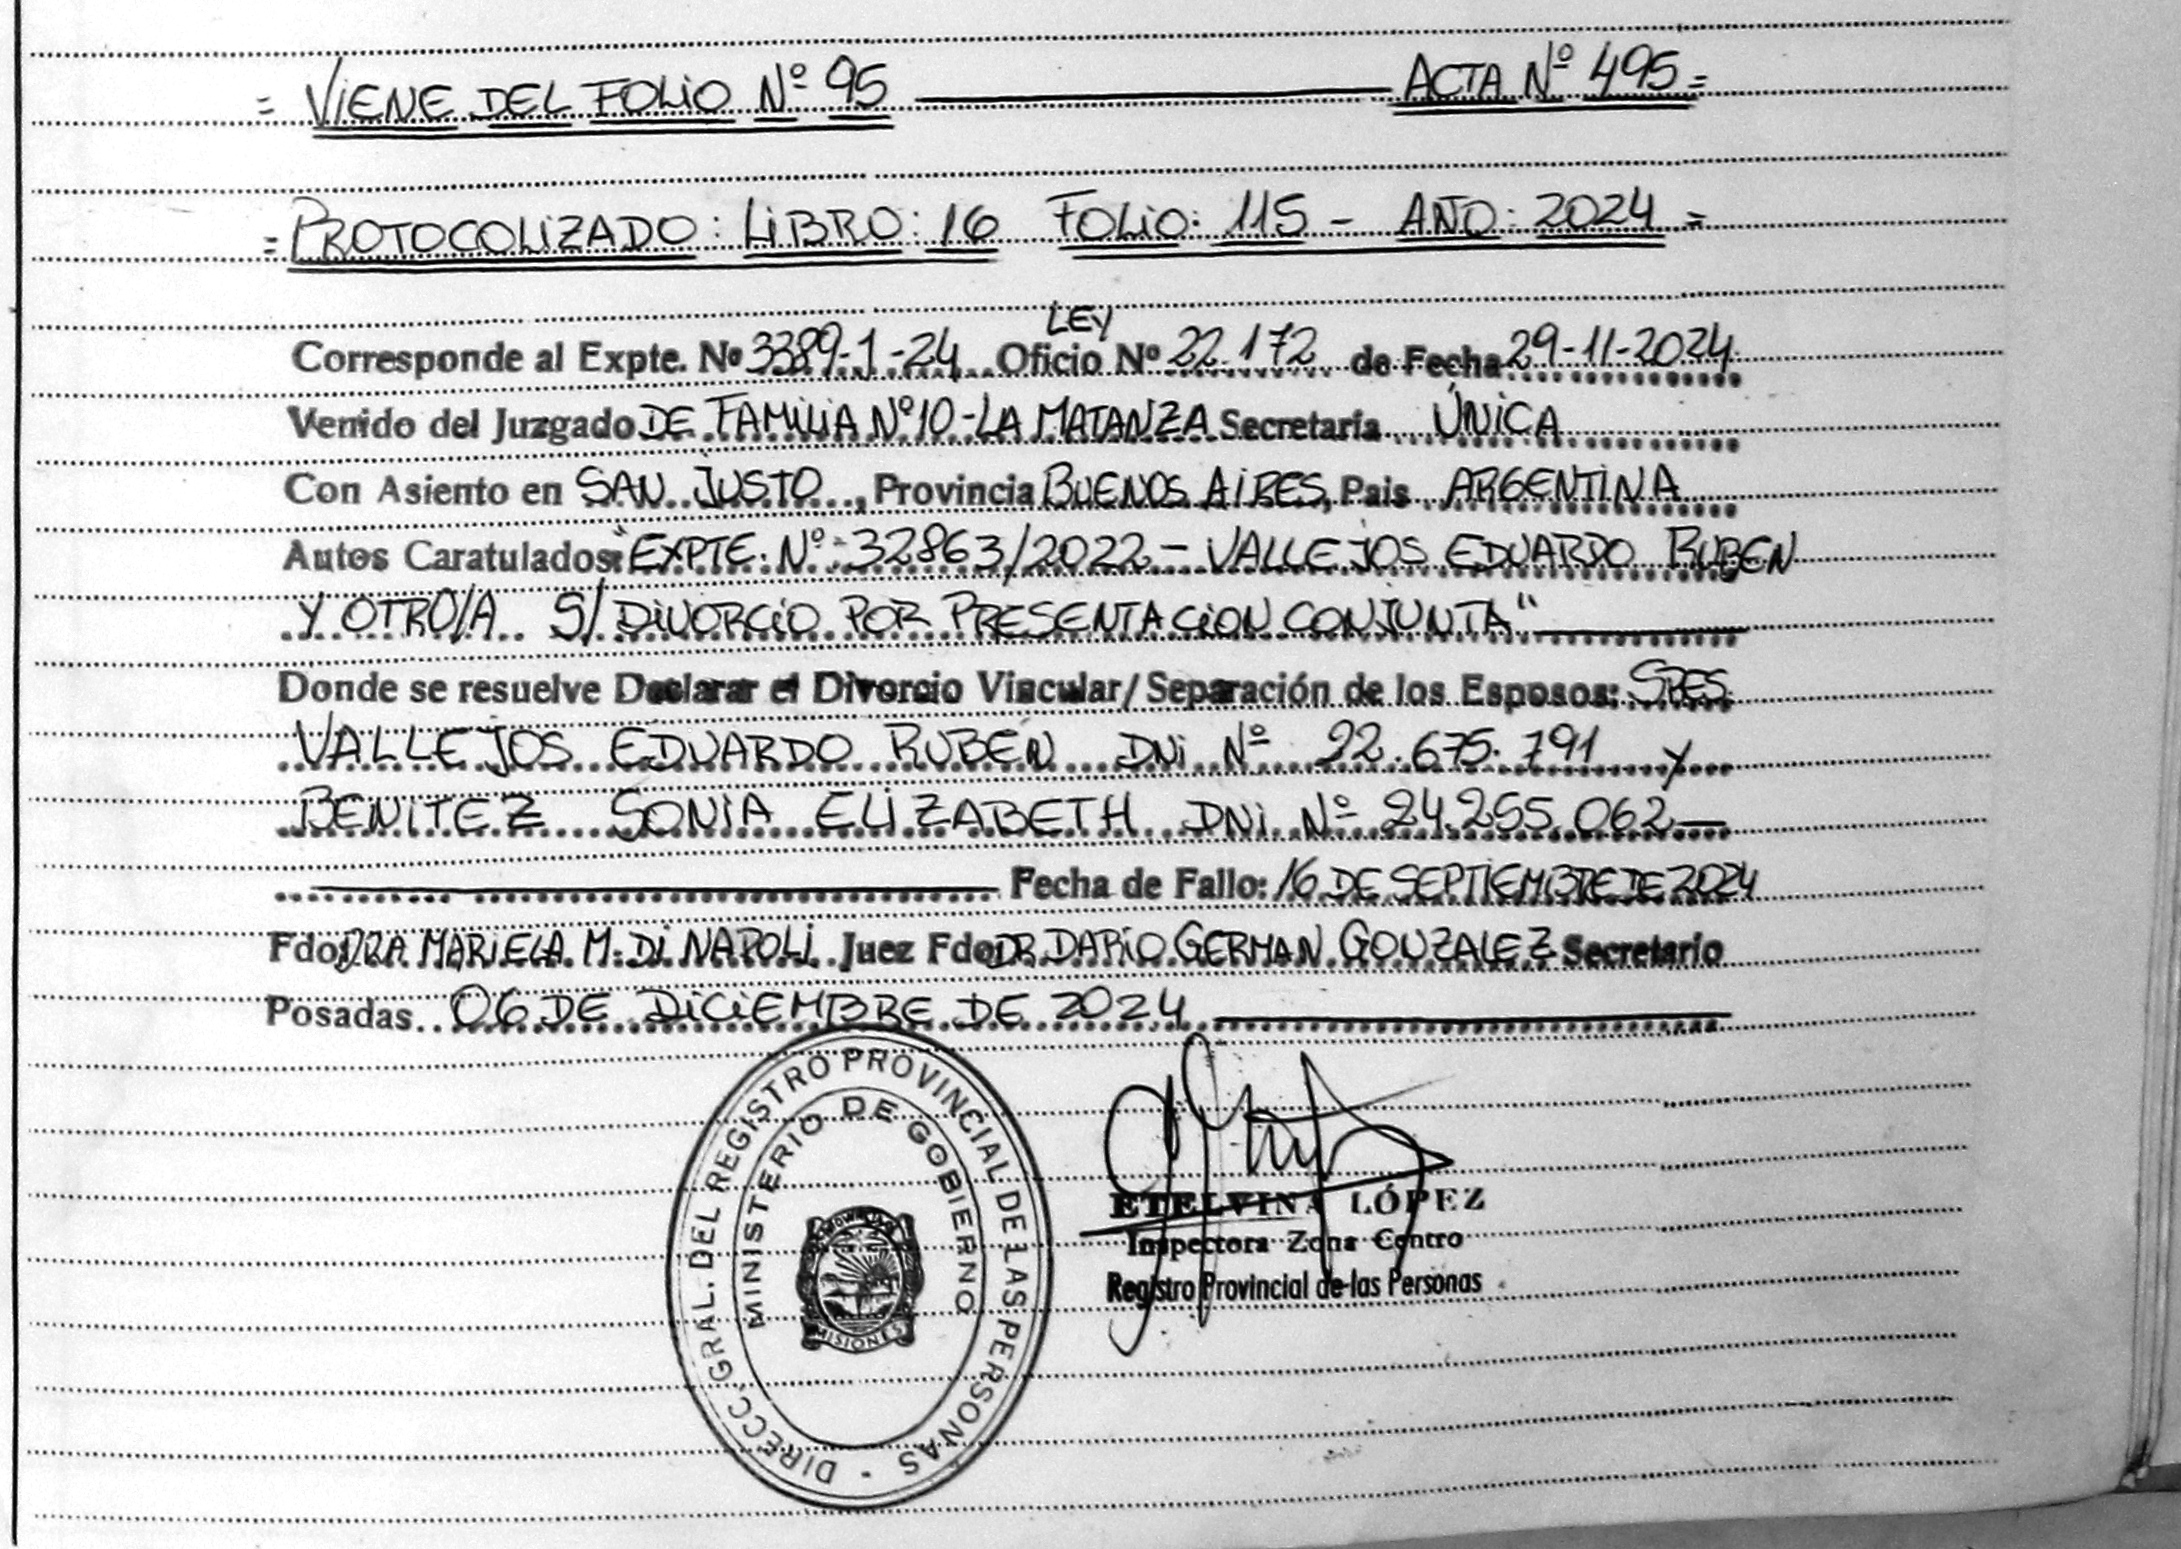 = VIENE DEL FOLIO Nº 95 ACTA Nº 495 =
= PROTOCOLIZADO: LIBRO: 16 FOLIO: 115 - AÑO: 2024 =
LEY
Corresponde al Expte. Nº 3389-1-24 Oficio Nº 22.172 de Fecha 29-11-2024
Venido del Juzgado DE FAMILIA Nº10-LA MATANZA Secretaría ÚNICA
Con Asiento en SAN JUSTO, Provincia BUENOS AIRES, Pais ARGENTINA
Autos Caratulados: "EXPTE. Nº: 32863/2022 - VALLEJOS EDUARDO RUBEN
Y OTRO/A S/ DIVORCIO POR PRESENTACION CONJUNTA"
Donde se resuelve Declarar el Divorcio Vincular/ Separación de los Esposos: SRES.
VALLEJOS EDUARDO RUBÉN DNI Nº 22.675.791 y
BENITEZ SONIA ELIZABETH DNI Nº 24.255.062
Fecha de Fallo: 16 DE SEPTIEMBRE DE 2024
Fdo DRA MARIELA M. DI NAPOLI Juez Fdo DR DARIO GERMAN GONZALEZ Secretario
Posadas 06 DE DICIEMBRE DE 2024
DIRECC. GRAL. DEL REGISTRO PROVINCIAL DE LAS PERSONAS -
MINISTERIO DE GOBIERNO
MISIONES
ETELVINA LÓPEZ
Inspectora Zona Centro
Registro Provincial de las Personas